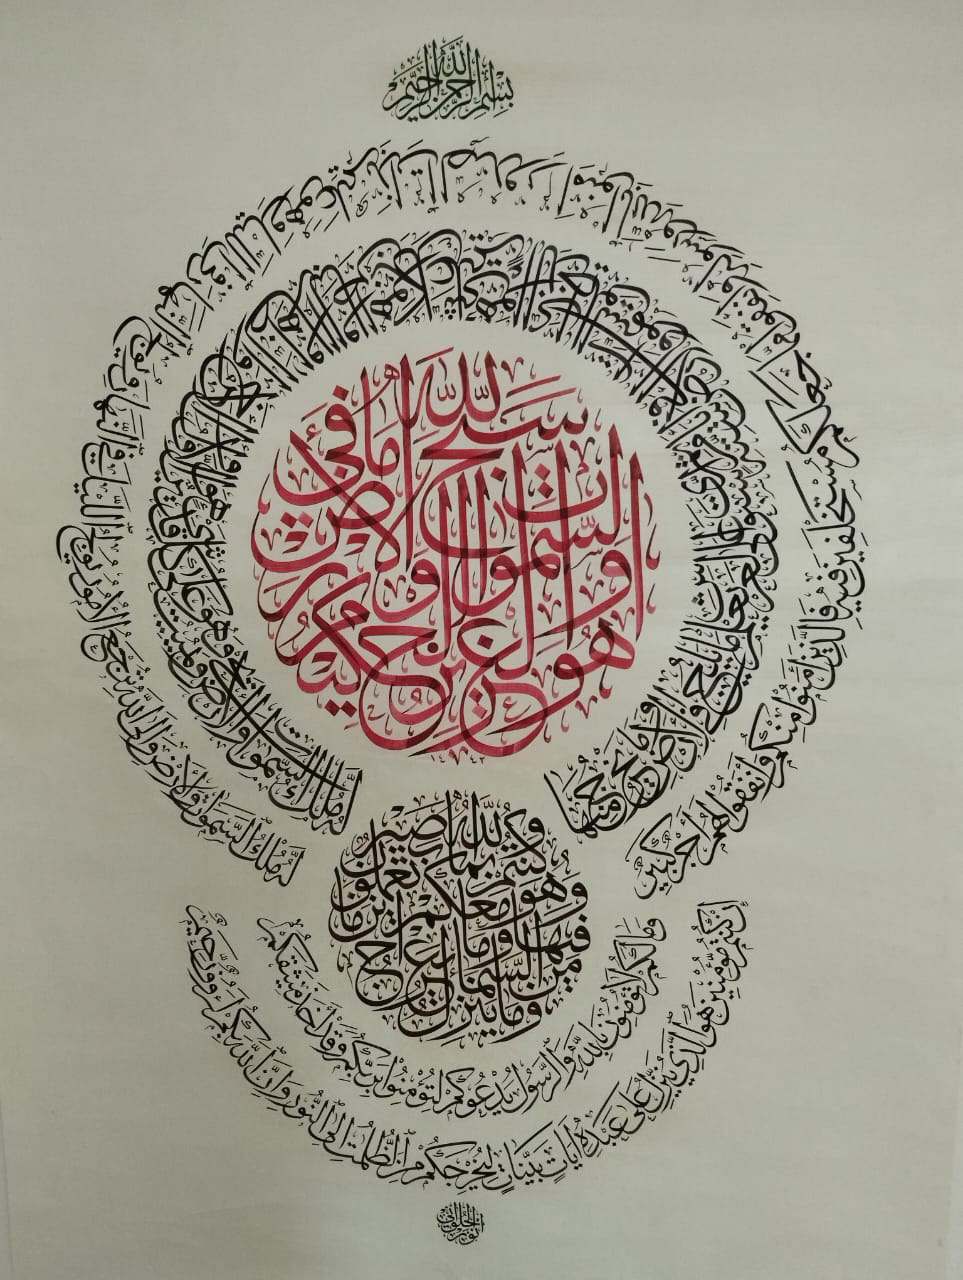 بِسْمِ اللَّهِ الرَّحْمَنِ الرَّحِيمِ
سبح لله ما في السموات والأرض وهو العزيز الحكيم
له ملك السموات والأرض يحي ويميت وهو على كل شيء قدير هو الأول والآخر والظاهر والباطن وهو بكل شيء عليم هو الذي خلق السموات والأرض في ستة أيام ثم استوى على العرش يعلم ما يلج في الأرض وما يخرج منها
وما ينزل من السماء وما يعرج فيها وهو معكم أين ما كنتم والله بما تعملون بصير
له ملك السموات والأرض وإلى الله ترجع الأمور يولج الليل في النهار ويولج النهار في الليل وهو عليم بذات الصدور آمنوا بالله ورسوله وأنفقوا مما جعلكم مستخلفين فيه فالذين آمنوا منكم وأنفقوا لهم أجر كبير
وما لكم لا تؤمنون بالله والرسول يدعوكم لتؤمنوا بربكم وقد أخذ ميثقكم
إن كنتم مؤمنين هو الذي ينزل على عبده آيات بينات ليخرجكم من الظلمت إلى النور وإن الله بكم لرءوف رحيم